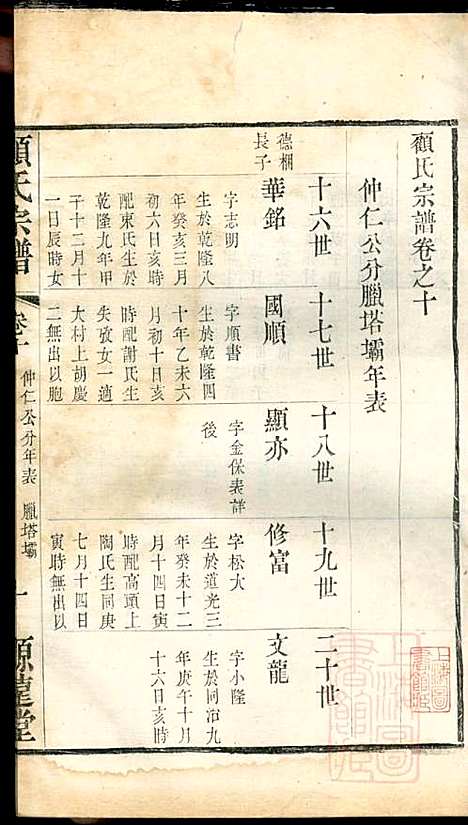 顧氏宗譜卷之十
仲仁公分臘塔壩年表
十六世
十七世
十八世
十九世
二十世
德栩
長子
華銘
字志明
生於乾隆八
年癸亥三月
初六日亥時
配東氏生於
乾隆九年甲
子十二月十
一日辰時女
國順
字順書
生於乾隆四
十年乙未六
月初十日亥
時配謝氏生
失攷女一適
大村上胡慶
二無出以胞
顯亦
字金保表詳
後
修富
字松大
生於道光三
年癸未十二
月十四日寅
時配高頭上
陶氏生同庚
七月十四日
寅時無出以
文龍
字小隆
生於同治九
年庚午十月
十六日亥時
顧氏宗譜
卷十
仲仁公分年表
臘塔壩
一
源達堂
上海圖書館藏
上海圖書館藏